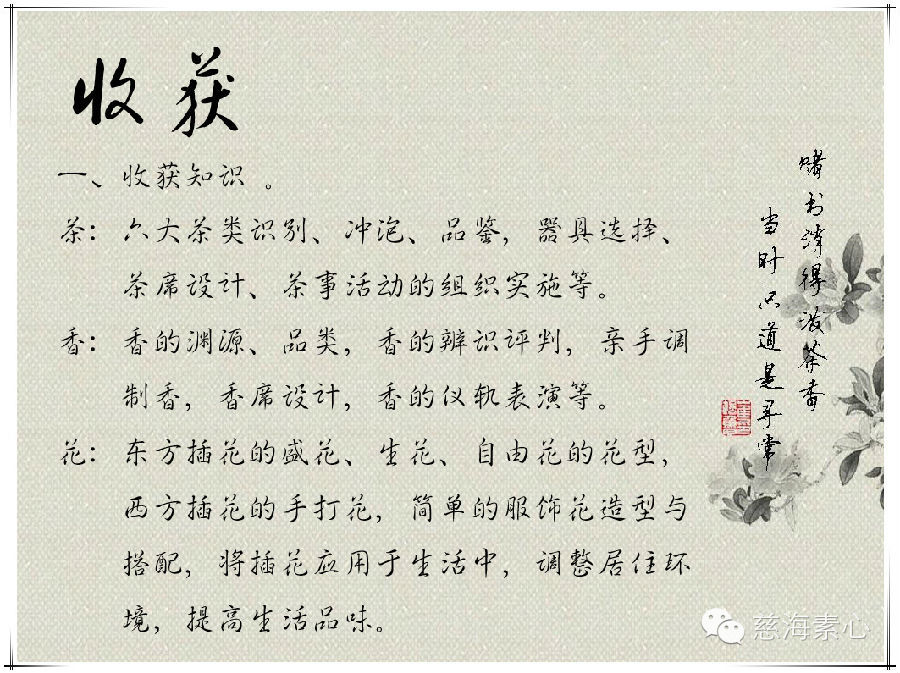 收获
一、收获知识 。
茶：六大茶类识别、冲泡、品鉴，器具选择、
茶席设计、茶事活动的组织实施等。
香：香的渊源、品类，香的辨识评判，亲手调
制香，香席设计，香的仪轨表演等。
花：东方插花的盛花、生花、自由花的花型，
西方插花的手打花，简单的服饰花造型与
搭配，将插花应用于生活中，调整居住环
境，提高生活品味。
赌书消得泼茶香
当时只道是寻常
慈海素心